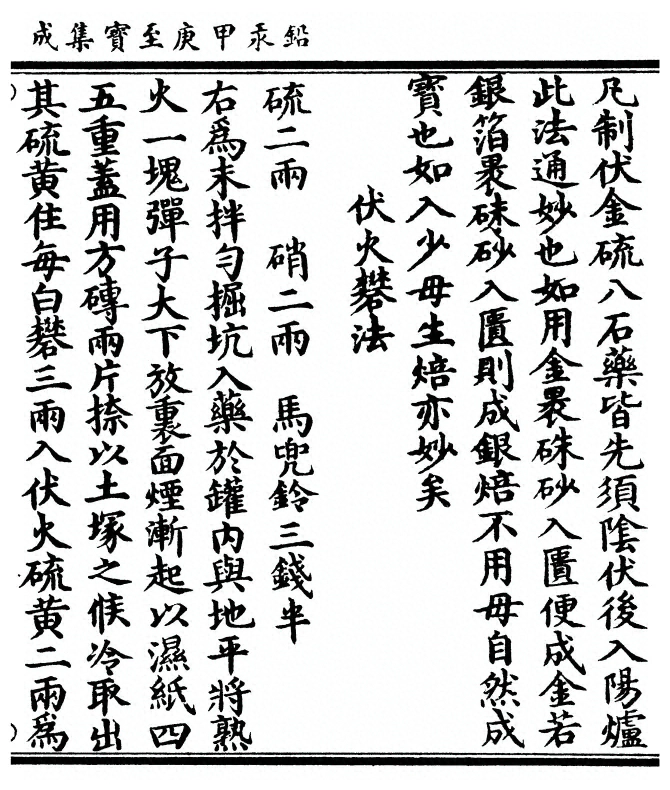 鉛汞甲庚至寶集成
凡制伏金硫八石藥皆先須陰伏後入陽爐
此法通妙也如用金褁硃砂入匱便成金若
銀箔褁硃砂入匱則成銀焙不用母自然成
寶也如入少母生焙亦妙矣
伏火礬法
硫二兩　硝二兩　馬兜鈴三錢半
右爲末拌勻掘坑入藥於罐内與地平將熟
火一塊彈子大下放裏面煙漸起以濕紙四
五重蓋用方磚兩片捺以土塚之候冷取出
其硫黄住每白礬三兩入伏火硫黄二兩爲